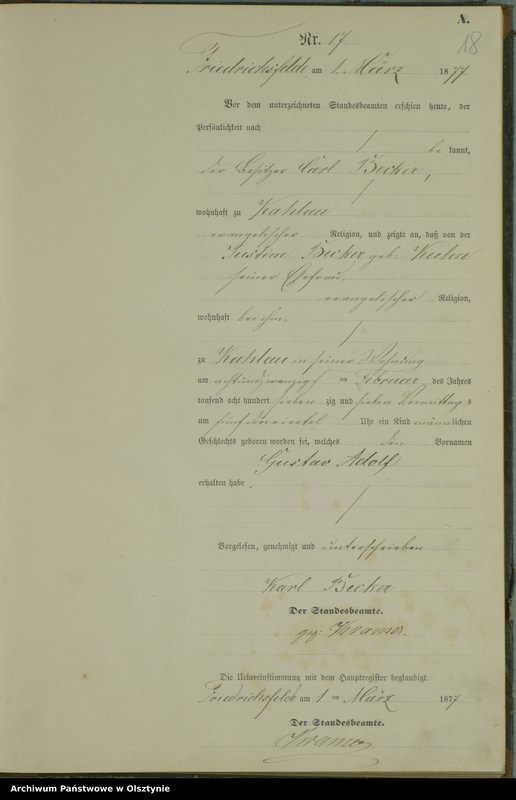 A.
18
Nr. 17
Friedrichsfelde am 1. März 1877
Vor dem unterzeichneten Standesbeamten erschien heute, der
Persönlichkeit nach
be kannt,
der Besitzer Carl Becker,
wohnhaft zu Kahlau
evangelischer Religion, und zeigte an, daß von der
Justine Becker geb. Kuhn
seiner Ehefrau,
evangelischer Religion,
wohnhaft bei ihm,
zu Kahlau in seiner Wohnung
am achtundzwanzigs ten Februar des Jahres
tausend acht hundert sieben zig und sieben Vormittag s
um fünf dreiviertel Uhr ein Kind männlichen
Geschlechts geboren worden sei, welches den Vornamen
Gustav Adolf
erhalten habe.
Vorgelesen, genehmigt und unterschrieben
Karl Becker
Der Standesbeamte.
gez.
Die Uebereinstimmung mit dem Hauptregister beglaubigt.
Friedrichsfelde am 1. ten März 1877
Der Standesbeamte.
Archiwum Państwowe w Olsztynie